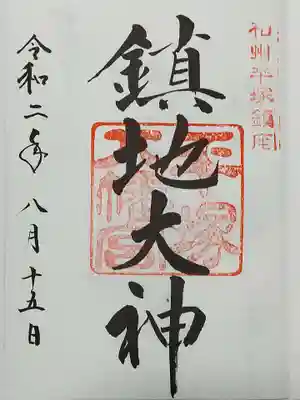 相州平塚鎮座
鎮地大神
令和二年 八月十五日